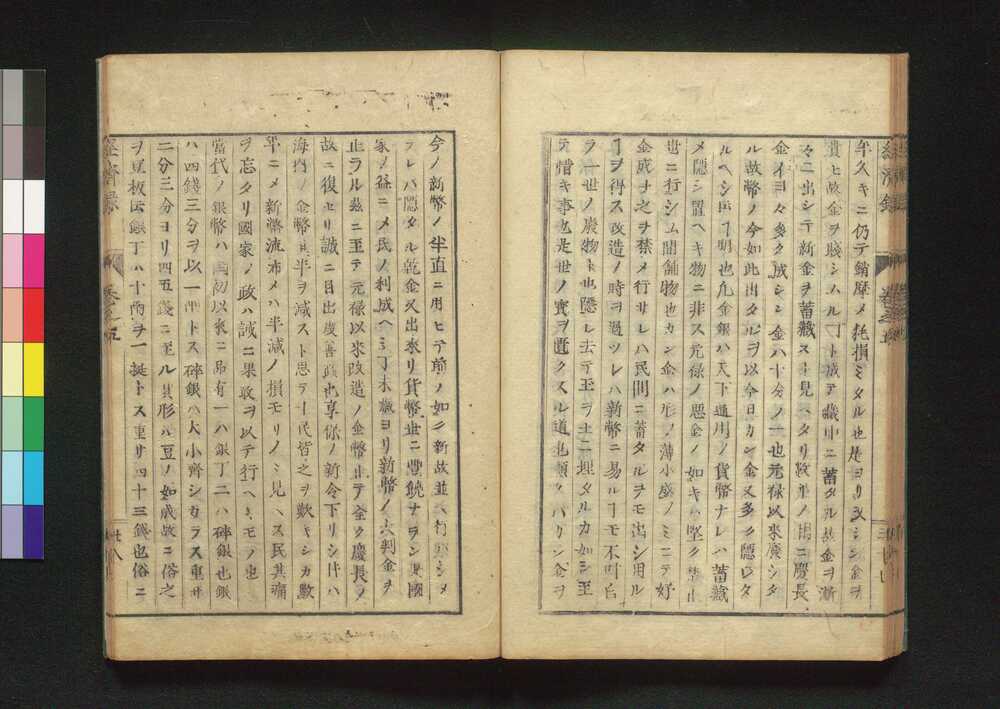 年久キニ仍テ銷摩メ耗損ミタル也是ヨリ又ミシン金ヲ
貴ヒ故金ヲ賤シムル丁ト成テ藏中ニ蓄タル故金ヲ漸
々ニ出シテ新金ヲ蓄藏スト見ヘタリ数年ノ間ニ慶長
金イヨ々々多ク減シシ金ハ十分ノ一也元禄以来廣シタ
ル故幣ノ今如此出タルヲ以今日カン金又多ク隠レタ
ルヘシ明也凢金銀ハ天下通用ノ貨幣ナレハ蓄藏
メ隠シ置ヘキ物ニ非ス元禄ノ悪金ノ如キハ堅ク禁止
世ニ行シム間舗物也カン金ハ形ノ薄小盛ノミニテ好
金成ナ之ヲ禁メ行サレハ民間ニ蓄タルヲモ出シ用ル
丁ヲ得ス改造ノ時ヲ過ツレハ新幣ニ易ル丁モ不叶
ラ一世ノ廃物ト也隠レ去テ玉ヲ土ニ埋タルカ如シ至
テ惜キ事也是世ノ寳ヲ遺クスル道也願クハカン金ヲ
今ノ新幣ノ半直ニ用ヒテ前ノ如ク新故並ヘ行ハシメ
ラレハ隠タル乾金又出来リ貨幣世ニ豊饒ナラン是國
家ノ益ニメ民ノ利成ヘシ丁未歳ヨリ新幣ノ大判金ヲ
止ラル茲ニ至テ元禄以来改造ノ金幣止テ全ク慶長ノ
故ニ復セリ誠ニ目出度善政也享保ノ新令下リシ時ハ
海内ノ金幣其半ヲ減スト思テ丁民皆之ヲ歎キシカ數
年ニメ新幣流布メハ半減ノ損モリノミ見ヘス民其痛
ヲ忘タリ國家ノ政ハ誠ニ果敢ヲ以テ行ヘキモノ也
當代ノ銀幣ハ國初以来ニ品有一ハ銀丁二ハ碎銀也銀
ハ四錢三分ヲ以一両トス碎銀ハ大小齊シカラス重サ
二分三分ヨリ四五錢ニ至ル其形ハ豆ノ如成故ニ俗之
ヲ豆板ト云銀丁ハ十両ヲ一挺トス重サ四十三錢也俗ニ
經濟録
巻之五